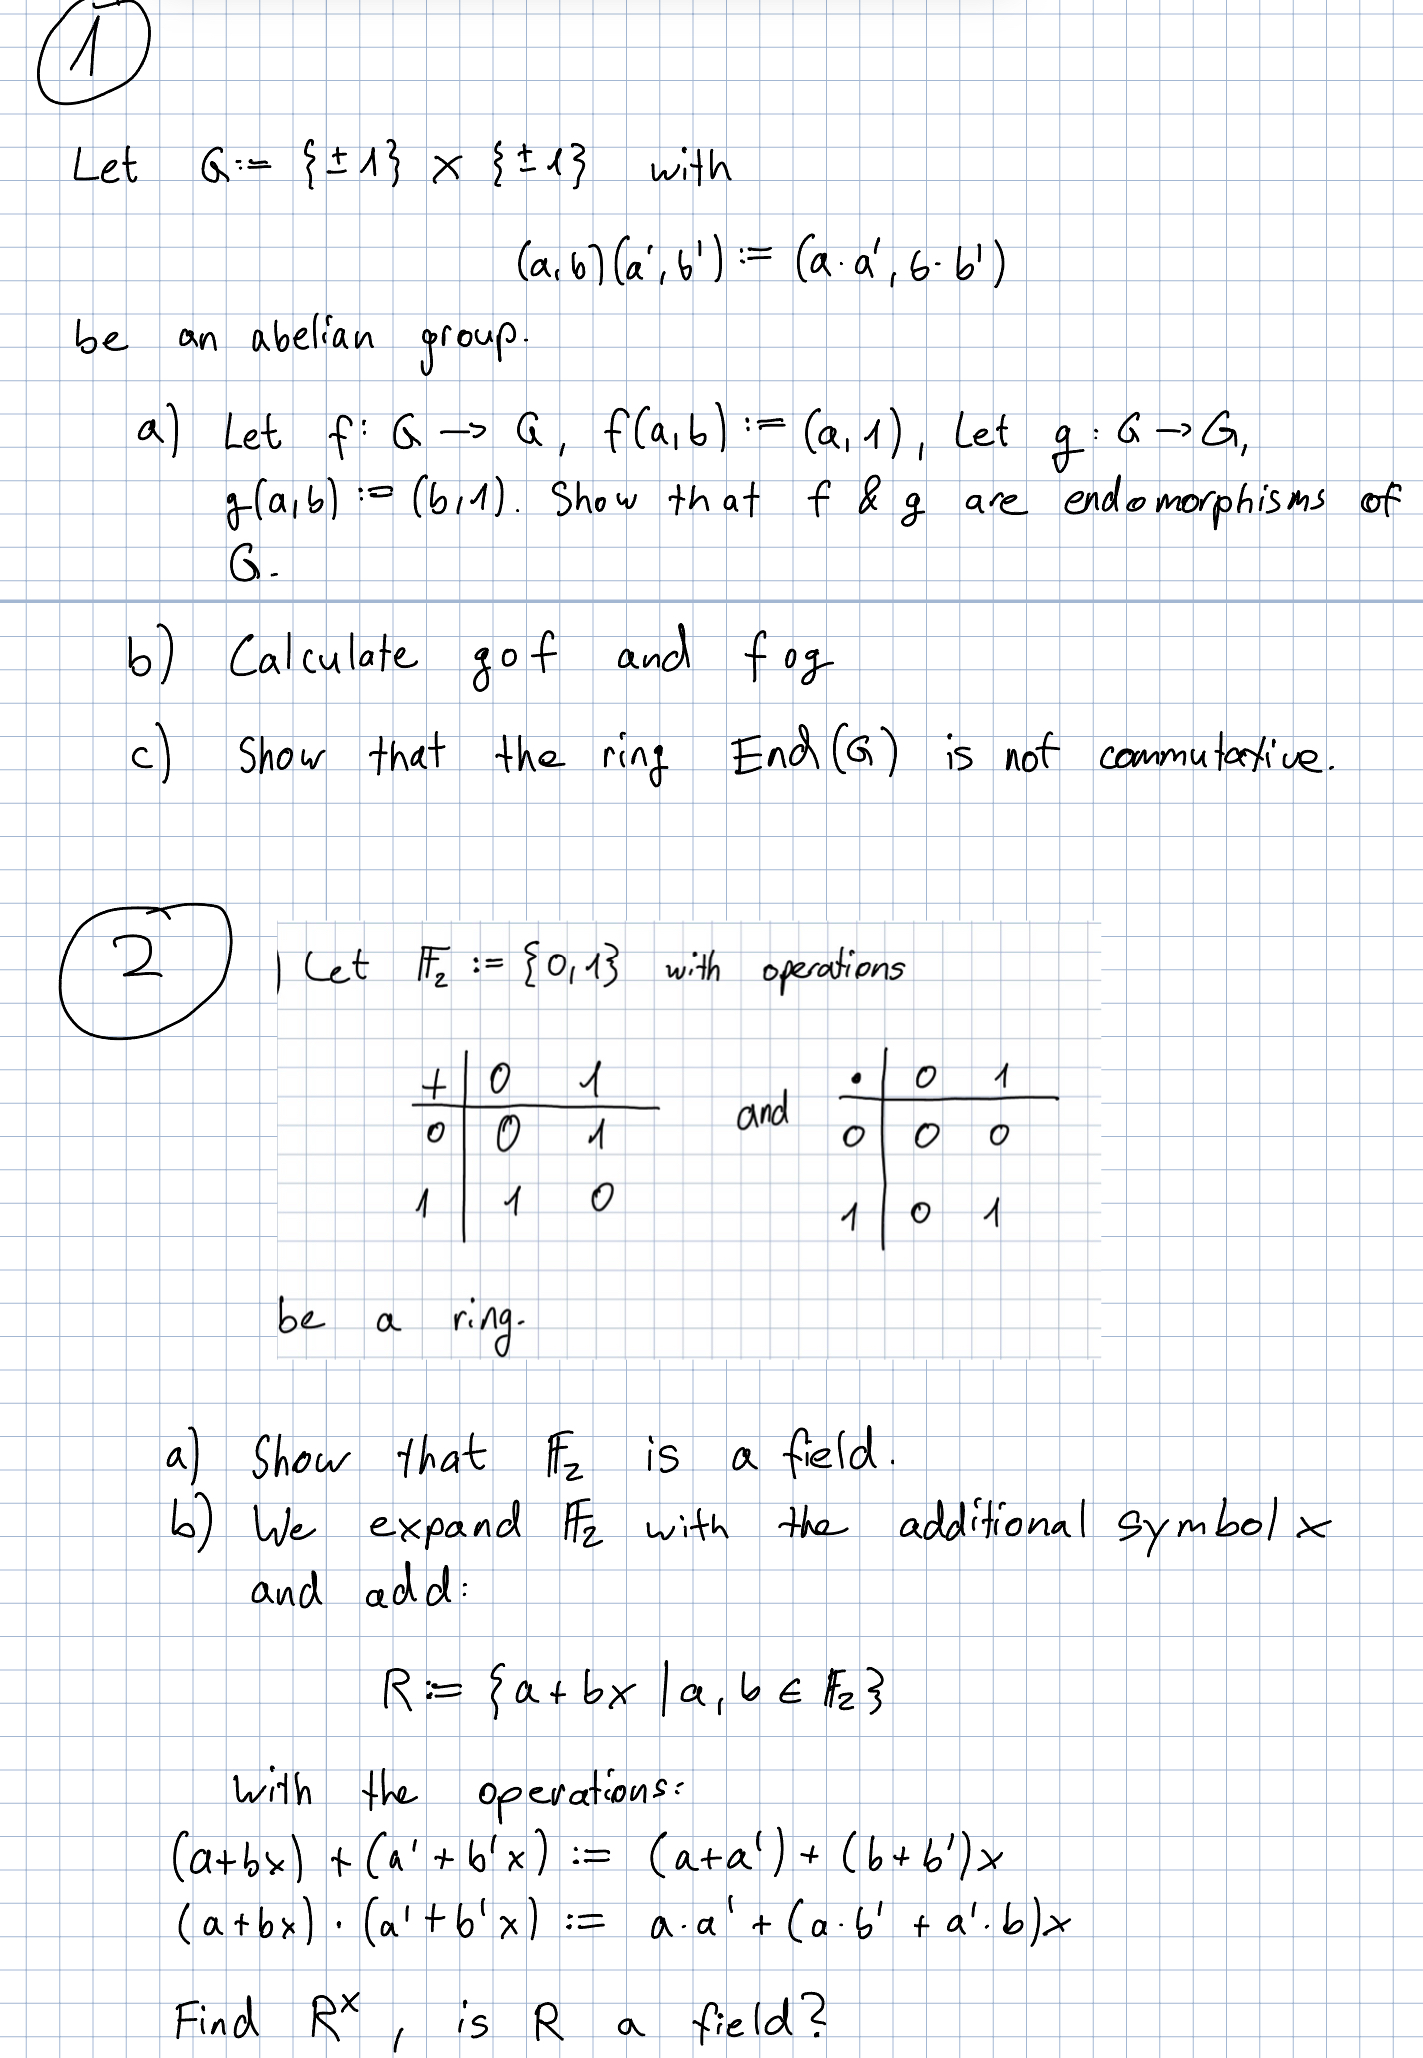 1
Let G := {±1} × {±1} with
(a,b)(a',b') := (a·a', b·b')
be an abelian group.
a) Let f: G → G, f(a,b) := (a,1), Let g: G → G,
g(a,b) := (b,1). Show that f & g are endomorphisms of
G.
b) Calculate g∘f and f∘g
c) Show that the ring End(G) is not commutative.
2
Let 𝔽₂ := {0,1} with operations
+ | 0 1 and · | 0 1
0 | 0 1 0 | 0 0
1 | 1 0 1 | 0 1
be a ring.
a) Show that 𝔽₂ is a field.
b) We expand 𝔽₂ with the additional symbol x
and add:
R := {a+bx | a, b ∈ 𝔽₂}
with the operations:
(a+bx) + (a'+b'x) := (a+a') + (b+b')x
(a+bx) · (a'+b'x) := a·a' + (a·b' + a'·b)x
Find Rˣ, is R a field?